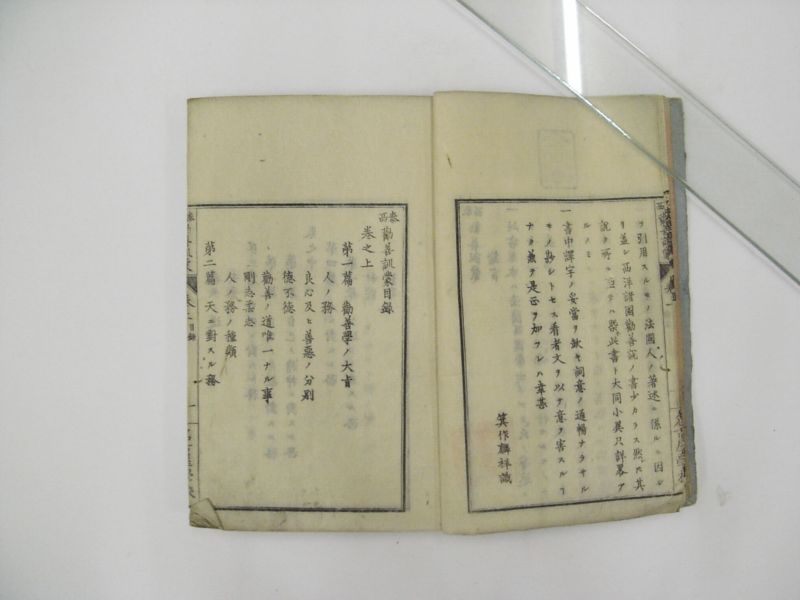 ヲ引用スルモノ法國人ノ著述ニ係ルニ因レ
リ蓋シ西洋諸國勸善説ノ書少カラス然其
説ク所ニ至テハ此書ト大同小異只詳畧ア
ルノミ
一書中譯字ノ妥當ヲ欠キ詞意ノ通暢ナラサル
モノ抄シトセス看者文ヲ以テ意ヲ害スル
ナク義ヲ是正ヲ加フレハ幸甚
箕作麟祥識
泰西勸善訓蒙目録
巻之上
第一篇 勸善學ノ大旨
人ノ務
良心及ヒ善惡ノ分別
德不德
勸善ノ道唯一ナル事
剛志柔志
人ノ務ノ種類
第二篇 天ニ對スル務